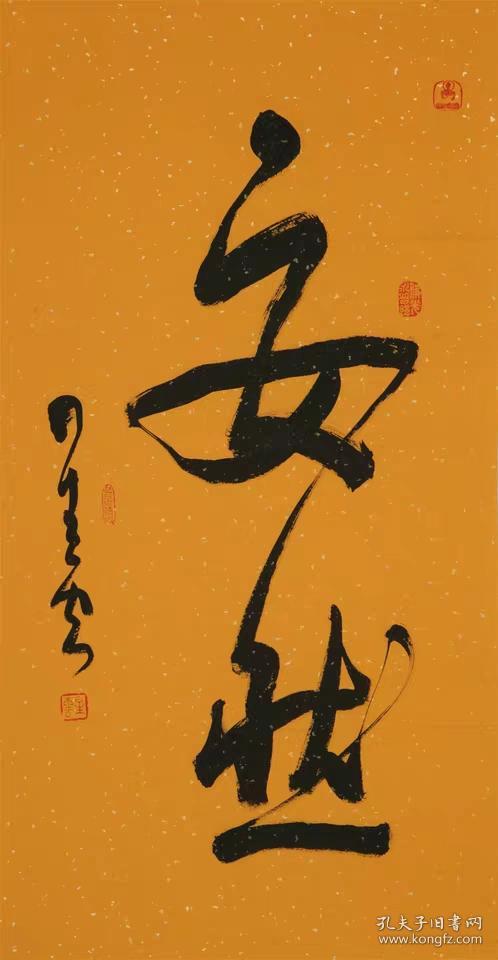 安然
星云
孔夫子旧书网
www.kongfz.com